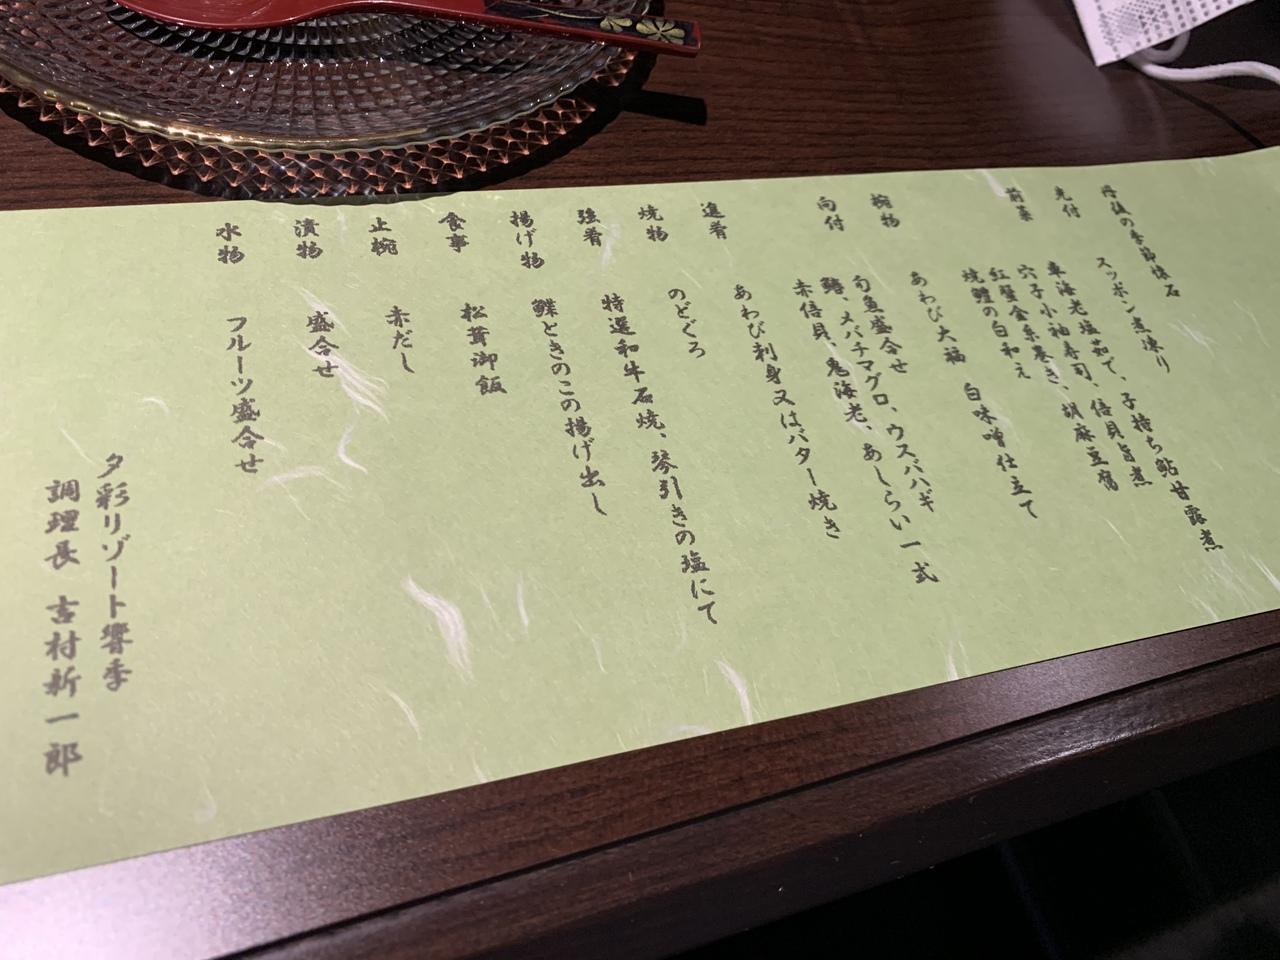 丹後の季節懐石
先付 スッポン煮凍り
前菜 車海老塩茹で、子持ち鮎甘露煮
穴子小袖寿司、倍貝旨煮
紅蟹金糸巻き、胡麻豆腐
焼鱧の白和え
椀物 あわび大福 白味噌仕立て
向付 旬魚盛合せ
鰆、メバチマグロ、ウスバハギ
赤倍貝、鬼海老、あしらい一式
進肴 あわび刺身又はバター焼き
焼物 のどぐろ
強肴 特選和牛石焼、琴引きの塩にて
揚げ物 鰈ときのこの揚げ出し
食事 松茸御飯
止椀 赤だし
漬物 盛合せ
水物 フルーツ盛合せ
夕彩リゾート響季
調理長 吉村新一郎